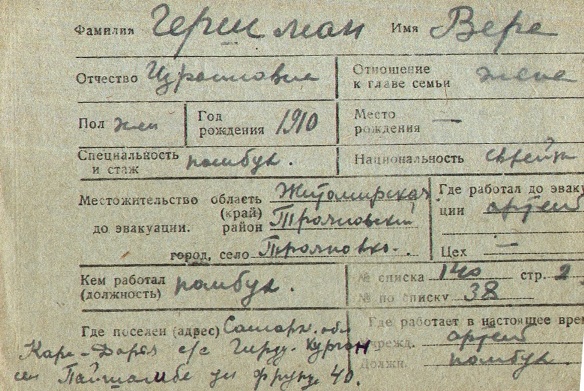 Фамилия Герш ман Имя Вера
Отчество Израиловна Отношение к главе семьи жена
Пол жен Год рождения 1910 Место рождения —
Специальность и стаж помбух. Национальность еврейк
Местожительство область Житомирская Где работал до эваку
(край) ции артель
до эвакуации. район Трояновский
город, село Трояновка. Цех —
Кем работал № списка 140 стр. 2
(должность) помбух. № по списку 38
Где поселен (адрес) Самарк. обл Где работает в настоящее врем
Кара-Дарья с/с Курган режд. артель
Пайшамбе ул Фрунзе 40. Должн. помбух